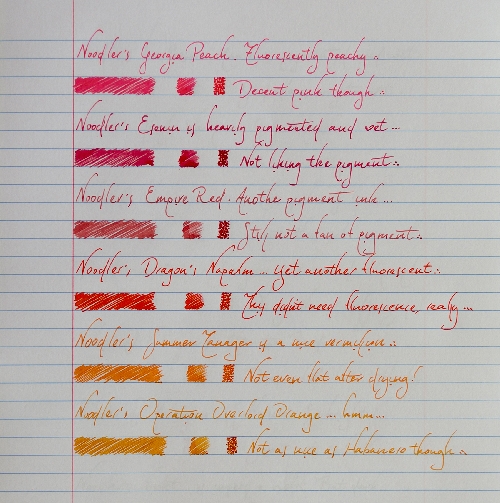 Noodler's Georgia Peach. Fluorescently peachy :.
Decent pink though :.
Noodler's Esonun is heavily pigmented and wet ...
Not liking the pigment :.
Noodler's Empire Red. Anothe pigment ink ...
Still not a fan of pigment :.
Noodler's Dragon's Napalm ... yet another fluorescent :.
This didn't need fluorescence, really ...
Noodler's Summer Tanager is a nice vermilion :.
Not even flat after drying!
Noodler's Operation Overlord Orange ... hmm ...
Not as nice as Habanero though :.